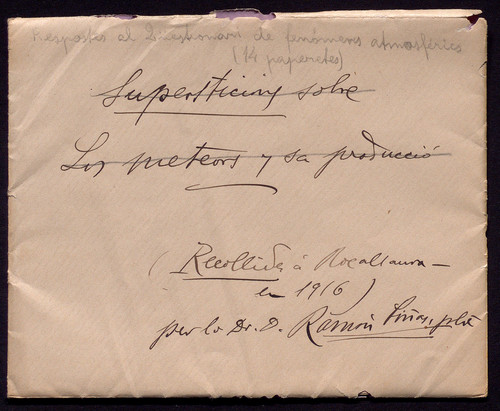 Respostes al 2 Qüestionari de fenòmens atmosfèrics
(14 paperetes)
Supersticiong sobre
Los meteors y sa producció
(Recollida á Rocallaura
en 1916)
per lo Dr. D. Ramón